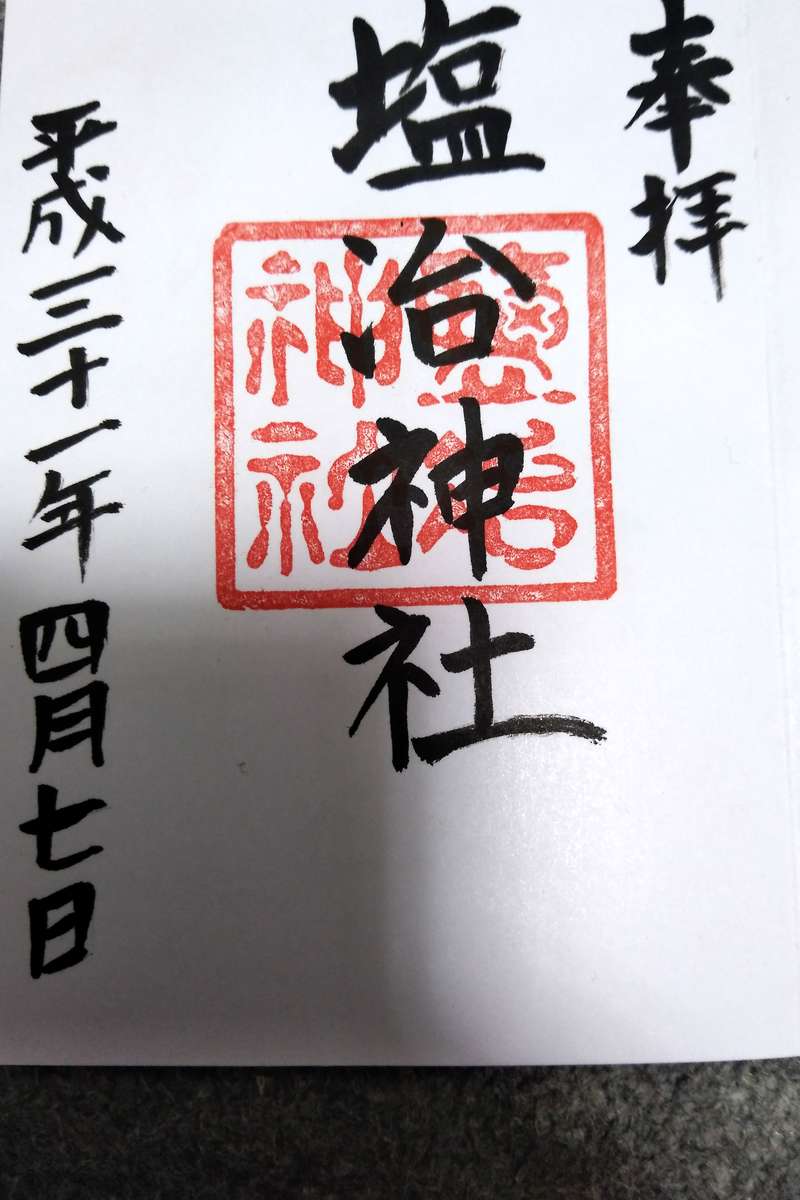 奉拝
塩冶神社
鹽冶
神社
平成三十一年四月七日